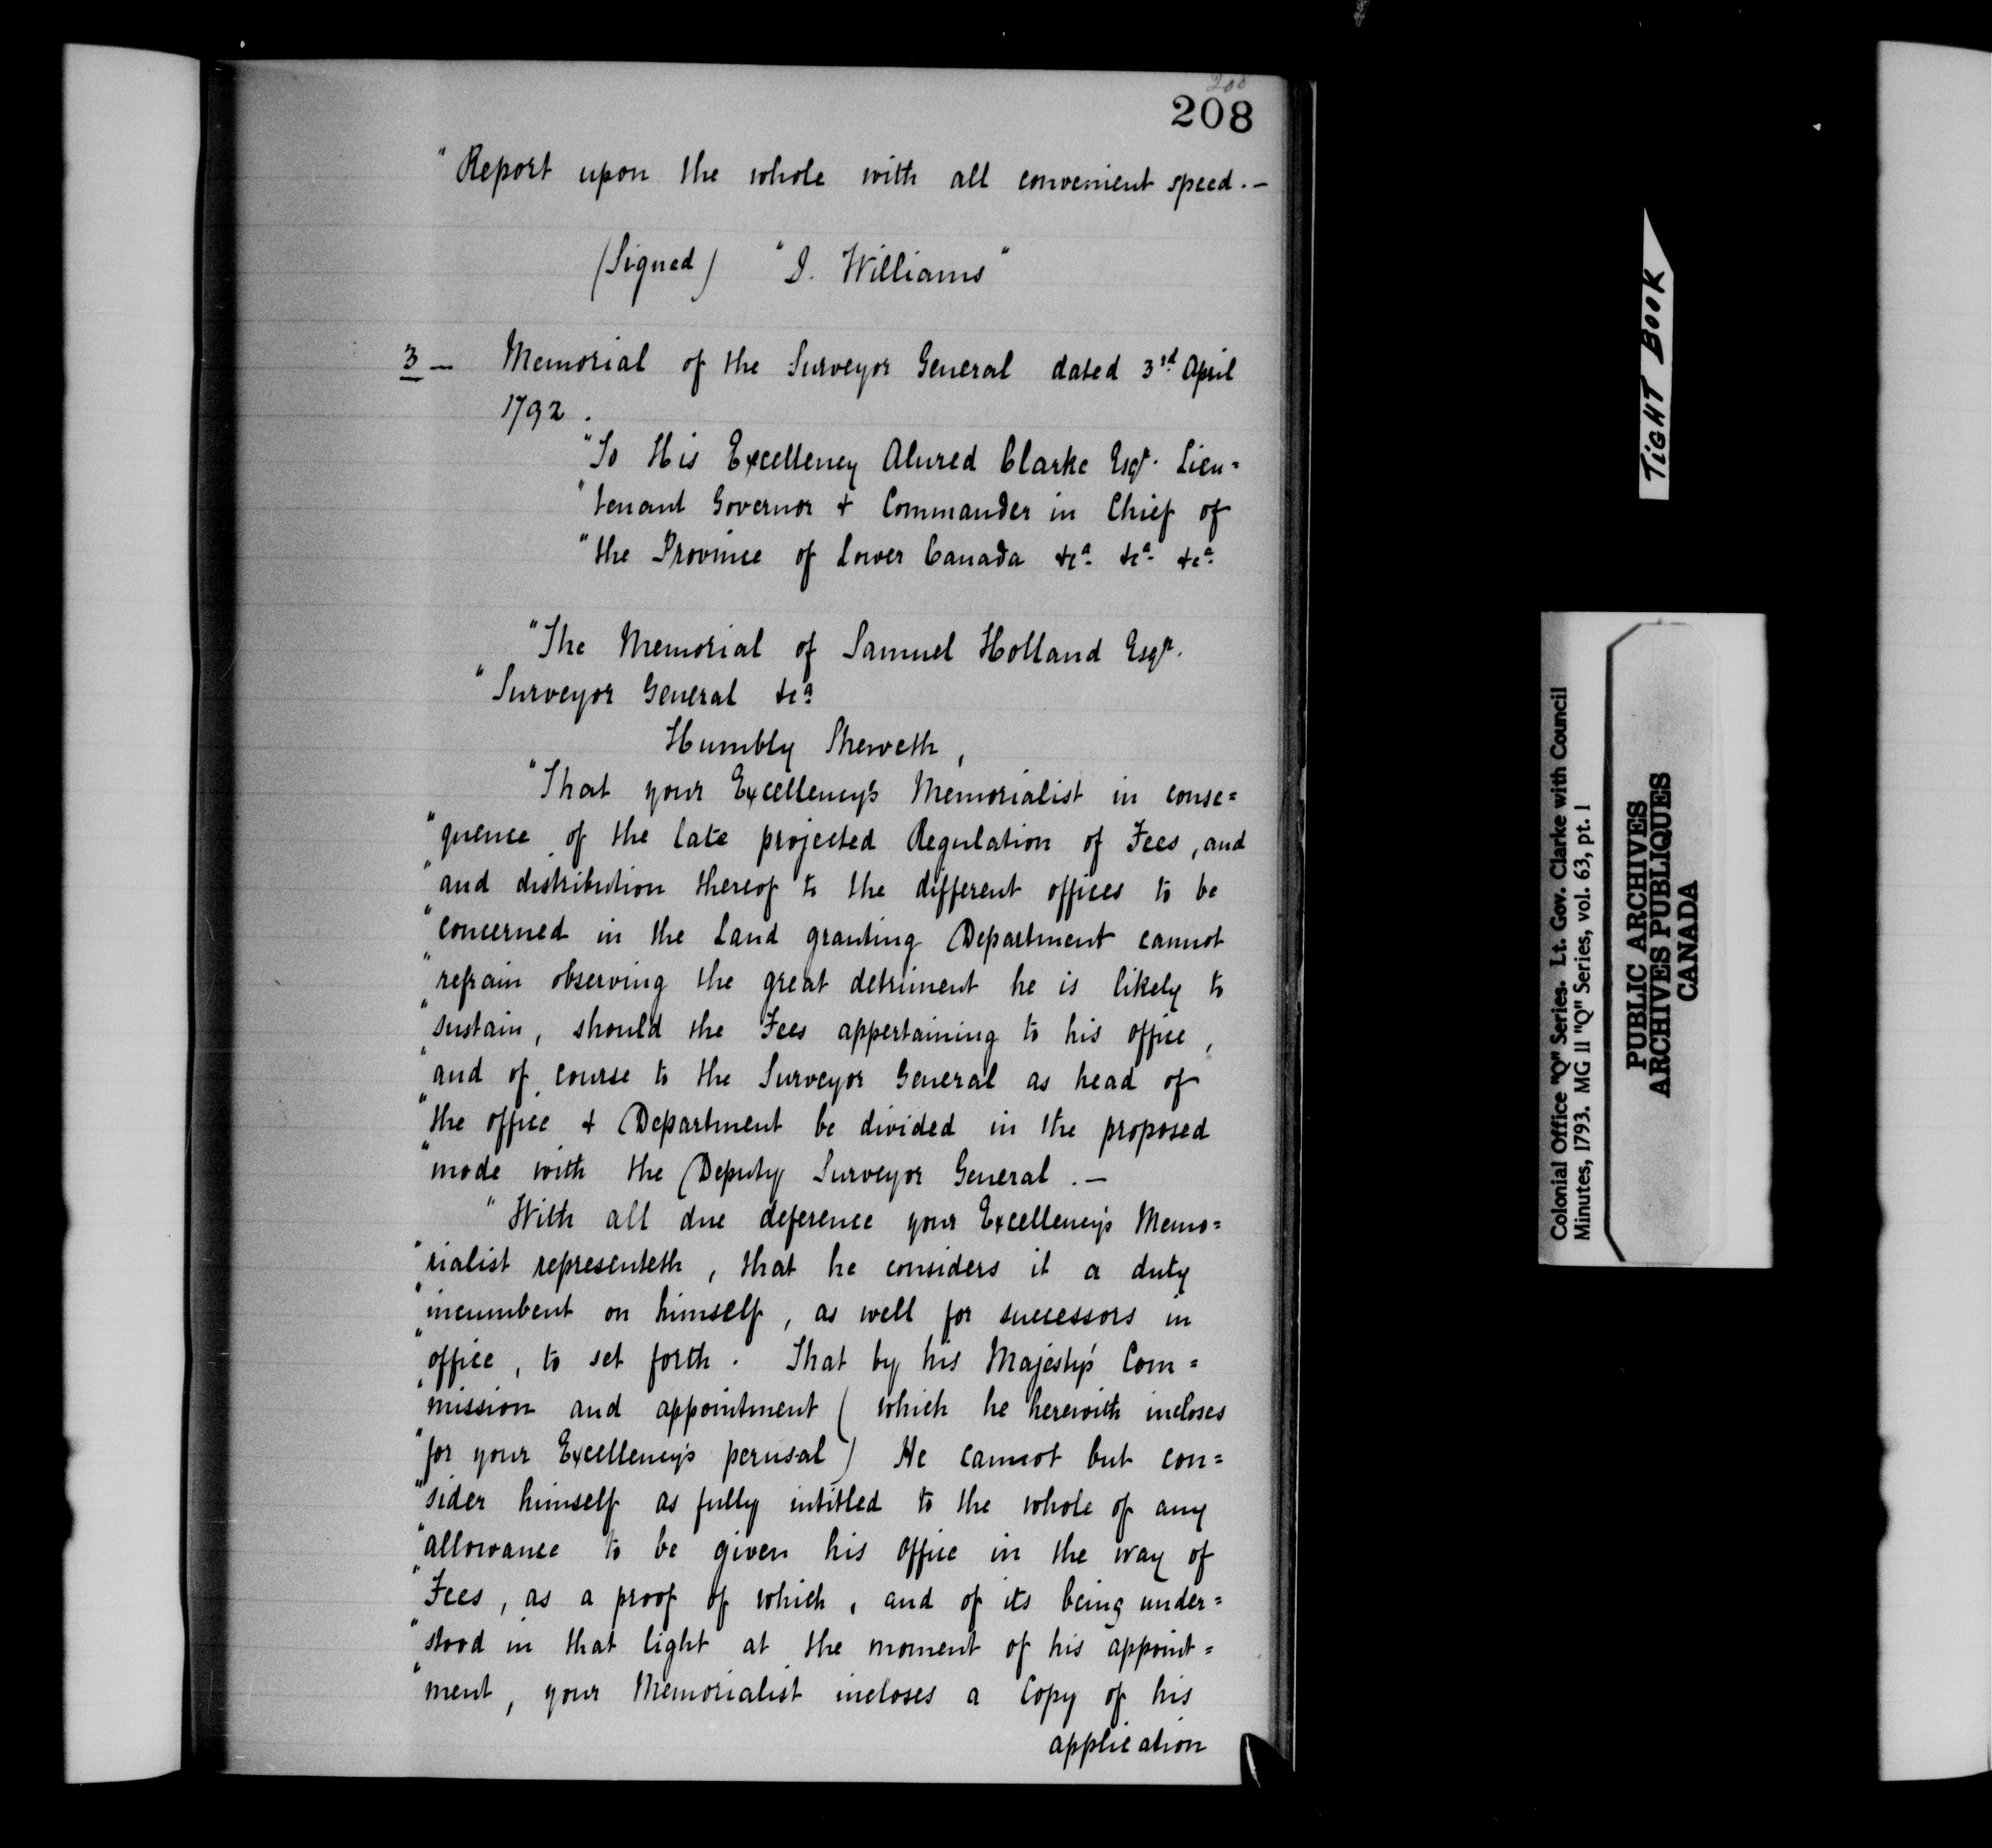 208
"Report upon the whole with all convenient speed.—
(Signed) "J. Williams"
3 — Memorial of the Surveyor General dated 3rd April
1792.
"To His Excellency Alured Clarke Esqr. Lieu=
"tenant Governor & Commander in Chief of
"the Province of Lower Canada &ca. &ca. &ca.
"The Memorial of Samuel Holland Esqr.
"Surveyor General &ca.
Humbly Sheweth,
"That your Excellency's Memorialist in conse=
"quence of the late projected Regulation of Fees, and
"and distribution thereof to the different offices to be
"concerned in the Land granting Department cannot
"refrain observing the great detriment he is likely to
"sustain, should the Fees appertaining to his office,
"and of course to the Surveyor General as head of
"the office & Department be divided in the proposed
"mode with the Deputy Surveyor General.—
"With all due deference your Excellency's Memo=
"rialist representeth, that he considers it a duty
"incumbent on himself, as well for successors in
"office, to set forth. That by his Majesty's Com=
"mission and appointment (which he herewith incloses
"for your Excellency's perusal) He cannot but con=
"sider himself as fully intitled to the whole of any
"allowance to be given his office in the way of
"Fees, as a proof of which, and of its being under=
"stood in that light at the moment of his appoint=
"ment, your Memorialist incloses a Copy of his
application
TIGHT BOOK
Colonial Office "Q" Series. Lt. Gov. Clarke with Council
Minutes, 1793. MG 11 "Q" Series, vol. 63, pt. 1
PUBLIC ARCHIVES
ARCHIVES PUBLIQUES
CANADA